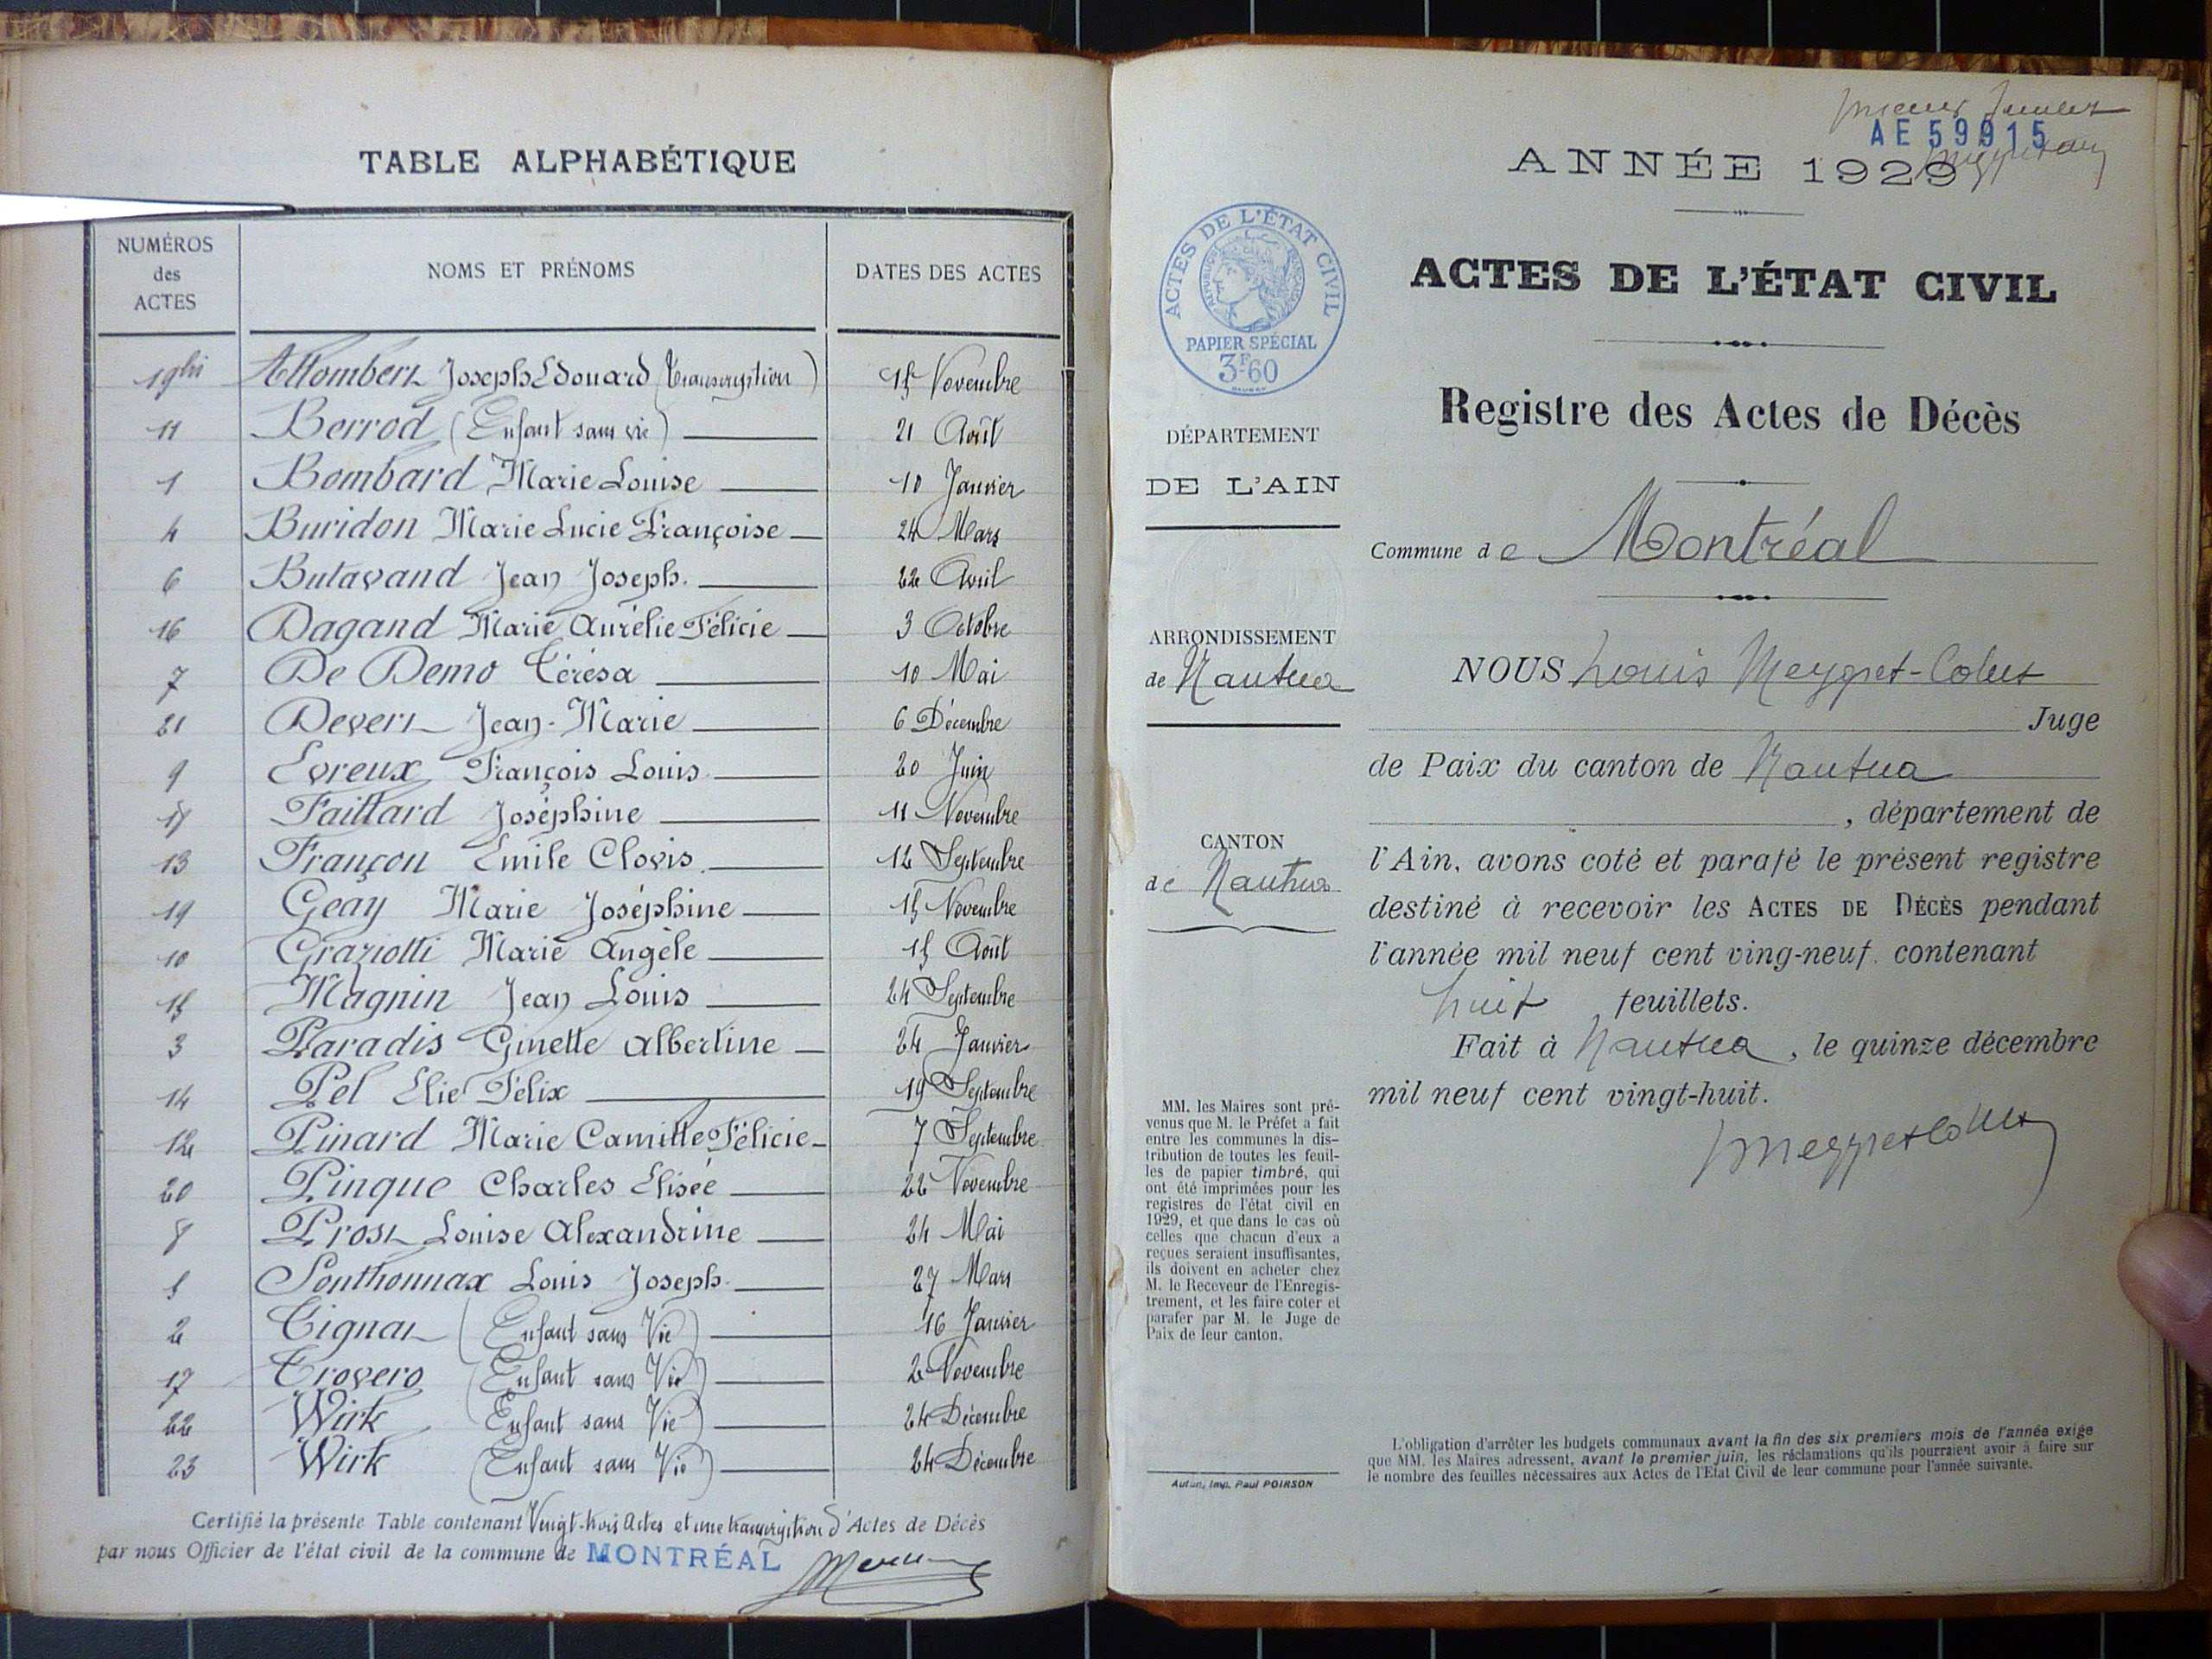 TABLE ALPHABÉTIQUE
NUMÉROS
des
ACTES
NOMS ET PRÉNOMS
DATES DES ACTES
19bis Allombert Joseph Edouard (Transcription) 15 Novembre
11 Berrod (Enfant sans vie) 21 Août
1 Bombard Marie Louise 10 Janvier
4 Buridon Marie Lucie Françoise 24 Mars
6 Butavand Jean Joseph. 22 Avril
16 Dagand Marie Aurélie Félicie 3 Octobre
7 De Demo Térésa 10 Mai
21 Devert Jean-Marie 6 Décembre
9 Evreux François Louis 20 Juin
18 Faillard Joséphine 11 Novembre
13 Françon Emile Clovis 12 Septembre
19 Geay Marie Joséphine 15 Novembre
10 Graziotti Marie Angèle 15 Août
15 Magnin Jean Louis 24 Septembre
3 Paradis Ginette Albertine 24 Janvier
14 Pel Elie Félix 19 Septembre
12 Pinard Marie Camille Félicie 7 Septembre
20 Pinque Charles Elisée 22 Novembre
8 Prost Louise Alexandrine 24 Mai
5 Sonthonnax Louis Joseph 27 Mars
2 Tignat (Enfant sans Vie) 16 Janvier
17 Trovero (Enfant sans Vie) 2 Novembre
22 Wirk (Enfant sans Vie) 24 Décembre
23 Wirk (Enfant sans Vie) 24 Décembre
Certifié la présente Table contenant Vingt-trois Actes et une transcription d'Actes de Décès
par nous Officier de l'état civil de la commune de MONTRÉAL
AE 59915
ANNÉE 1929
ACTES DE L'ÉTAT CIVIL
RÉPUBLIQUE FRANÇAISE
PAPIER SPÉCIAL
3F60
DÉPARTEMENT
DE L'AIN
ARRONDISSEMENT
de Nantua
CANTON
de Nantua
MM. les Maires sont pré-
venus que M. le Préfet a fait
entre les communes la dis-
tribution de toutes les feuil-
les de papier timbré, qui
ont été imprimées pour les
registres de l'état civil en
1929, et que dans le cas où
celles que chacun d'eux a
reçues seraient insuffisantes,
ils doivent en acheter chez
M. le Receveur de l'Enregis-
trement, et les faire coter et
parafer par M. le Juge de
Paix de leur canton.
Autun, Imp. Paul POIRSON
ACTES DE L'ÉTAT CIVIL
Registre des Actes de Décès
Commune de Montréal
NOUS Louis Meygret-Collet
Juge
de Paix du canton de Nantua
, département de
l'Ain, avons coté et parafé le présent registre
destiné à recevoir les ACTES DE DÉCÈS pendant
l'année mil neuf cent ving-neuf, contenant
huit feuillets.
Fait à Nantua, le quinze décembre
mil neuf cent vingt-huit.
L'obligation d'arrêter les budgets communaux avant la fin des six premiers mois de l'année exige
que MM. les Maires adressent, avant le premier juin, les réclamations qu'ils pourraient avoir à faire sur
le nombre des feuilles nécessaires aux Actes de l'Etat Civil de leur commune pour l'année suivante.